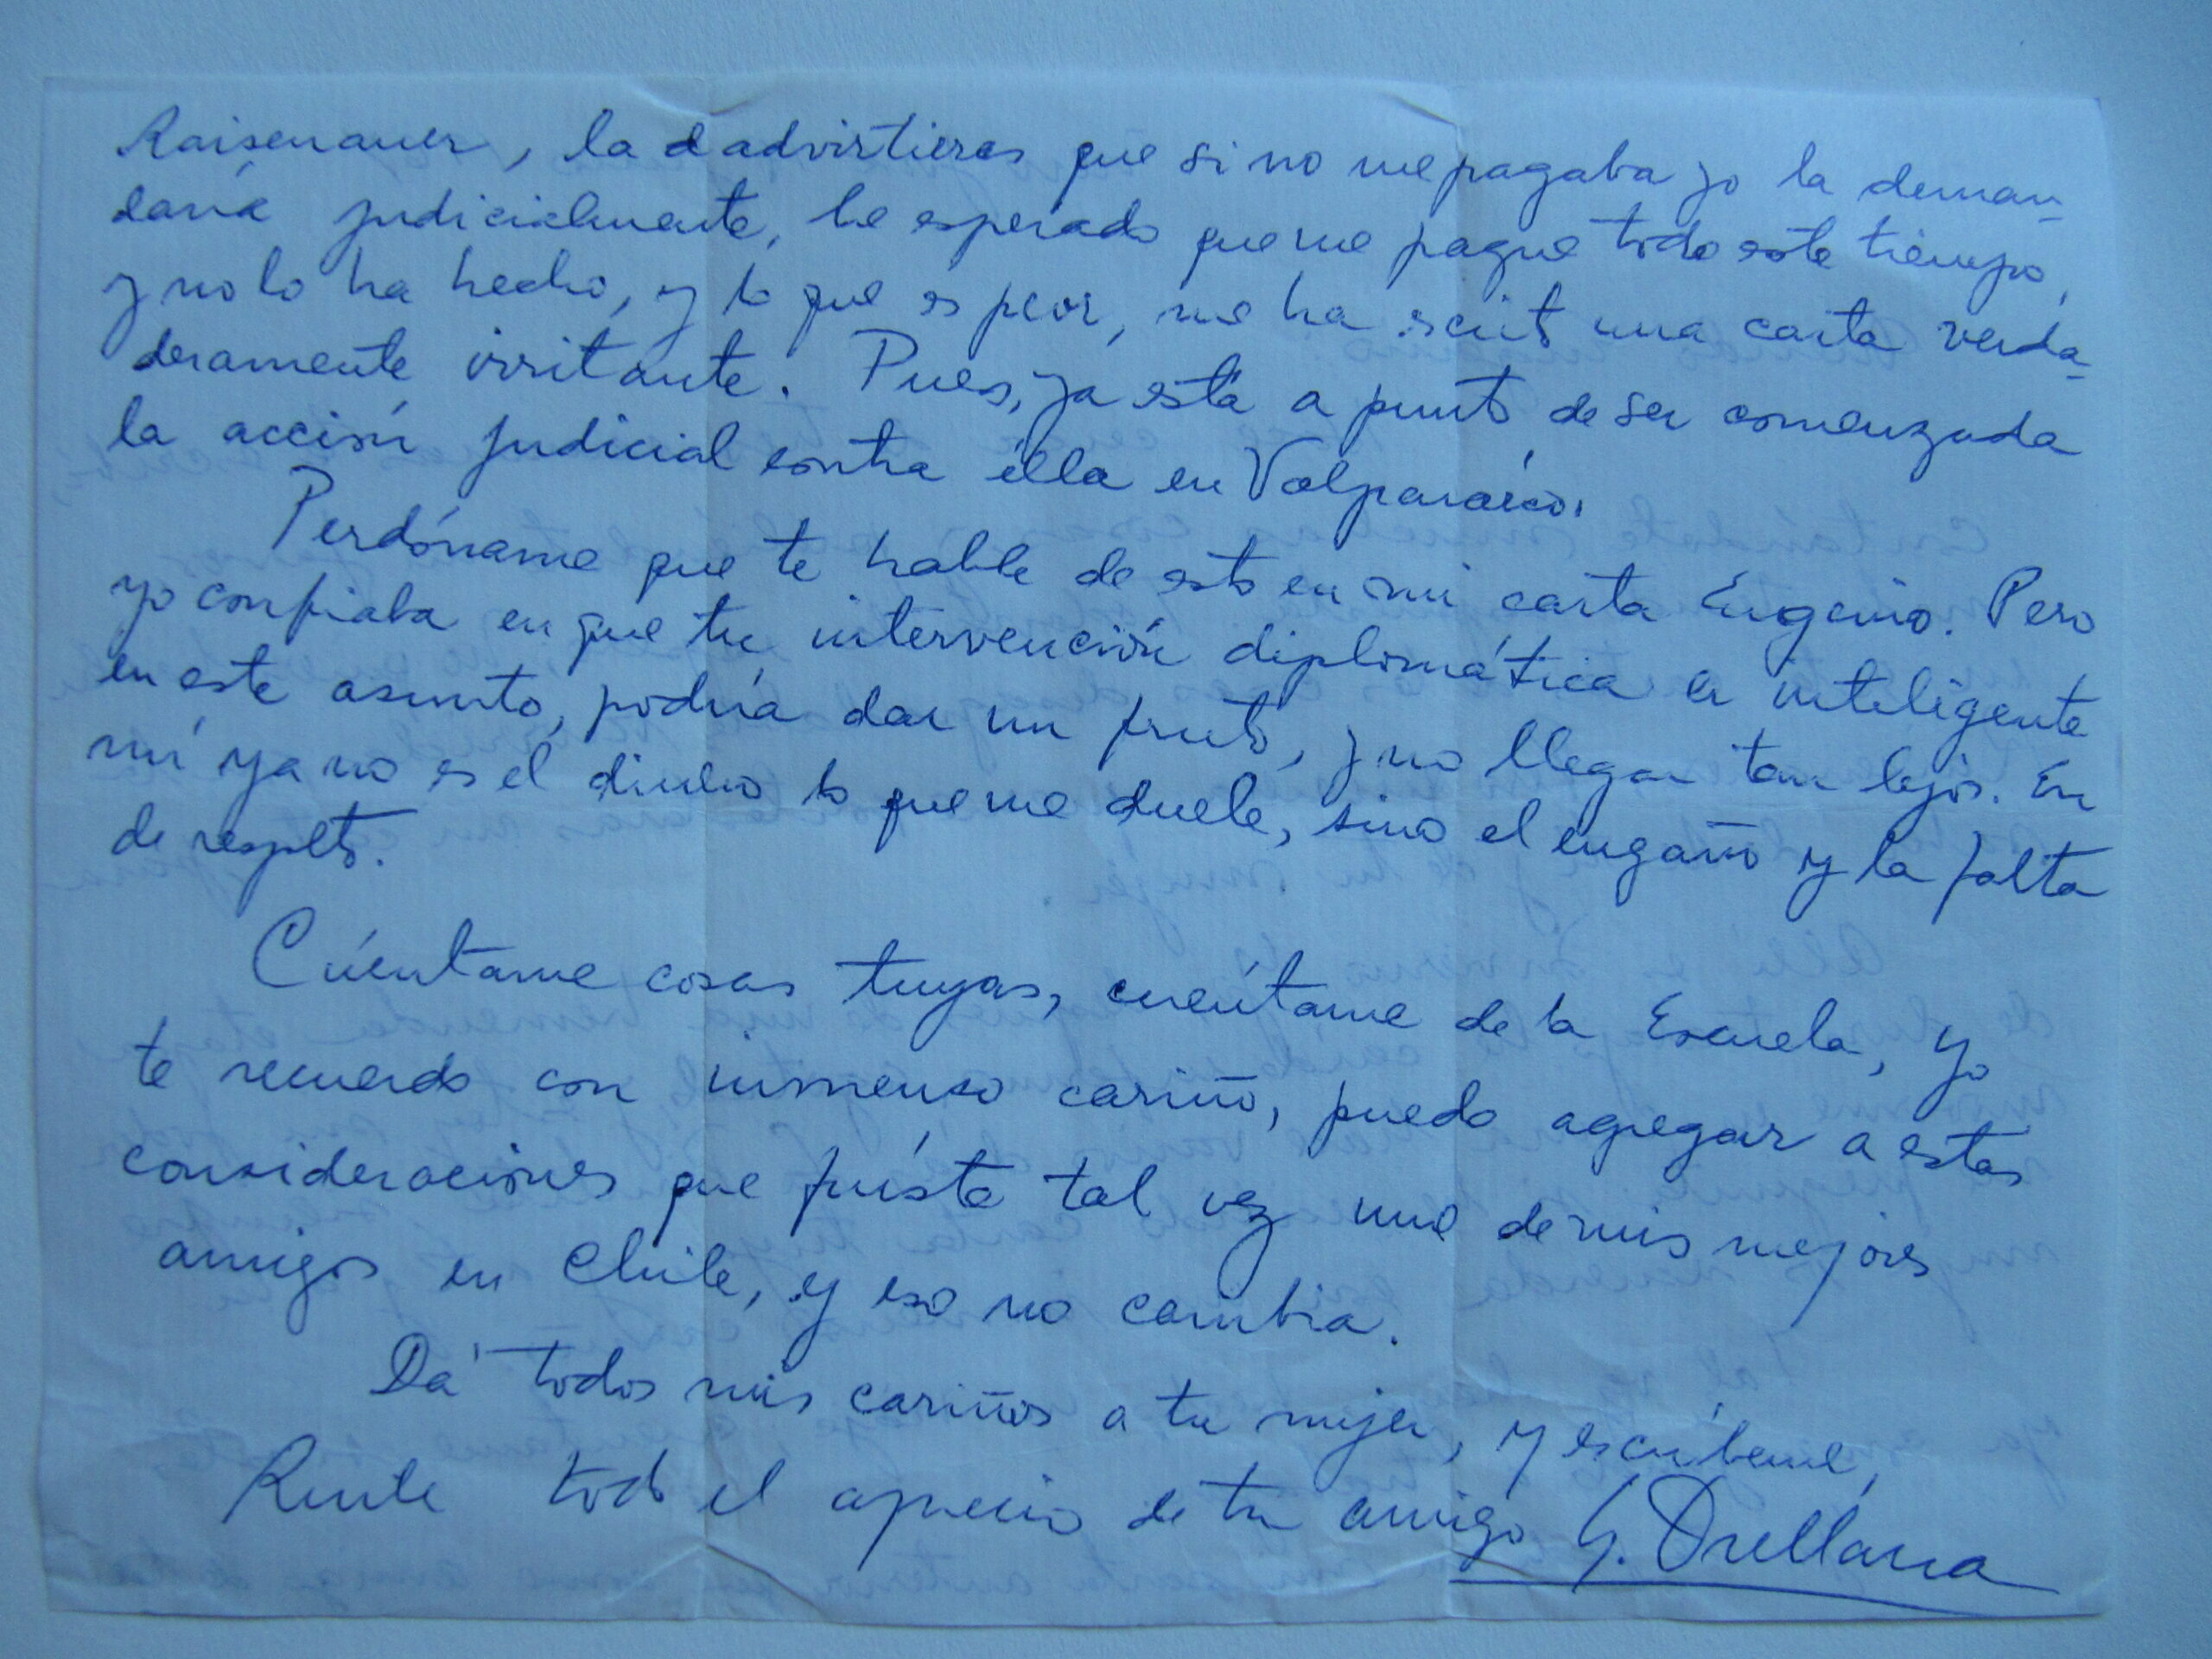 Raisenauer, la advirtieras que si no me pagaba yo la deman-
daría judicialmente, he esperado que me pague todo este tiempo,
y no lo ha hecho, y lo que es peor, me ha scrito una carta verda-
deramente irritante. Pues, ya está a punto de ser comenzada
la acción judicial contra élla en Valparaíso.
Perdóname que te hable de esto en mi carta Eugenio. Pero
yo confiaba en que tu intervención diplomática e inteligente
en este asunto, podría dar un fruto, y no llegar tan lejos. En
mí ya no es el dinero lo que me duele, sino el engaño y la falta
de respeto.
Cúentame cosas tuyas, cuéntame de la Escuela, yo
te recuerdo con inmenso cariño, puedo agregar a estas
consideraciones que fuíste tal vez uno de mis mejores
amigos en Chile, y eso no cambia.
Dá todos mis cariños a tu mujer, y escríbeme,
todo el aprecio de tu amigo G. Orellana